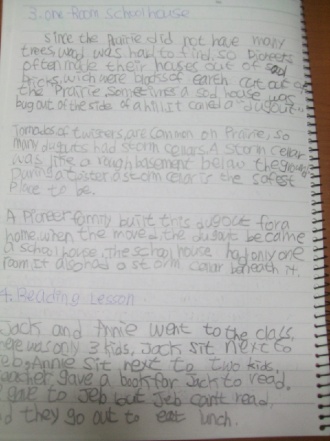 3. one-Room school house
since the Prairie did not have many
trees, wood was hard to find, so Pioneers
often made their houses out of sod
bricks, wich were blocks of earth cut out of
the Prairie, sometimes a sod house was
bug out of the side of a hill it called a "dugout"..
Tornados of twisters, are common on Prairie, so
many duguts had storm cellars. A storm cellar
was like a rough basement below the ground
During a twister a storm cellar is the safest
Place to be.
A Pioneer family built this dugout for a
home. when the moved, the dugout became
a school house. The school house had only one
room. It also had a storm cellar beneath it.
4. Reading Lesson
Jack and Annie went to the class,
ere was only 3 kids, Jack sit next to
eb, Annie sit next to two kids,
eacher gave a book for Jack to read,
gave to Jeb but Jeb can't read,
d they go out to eat lunch.